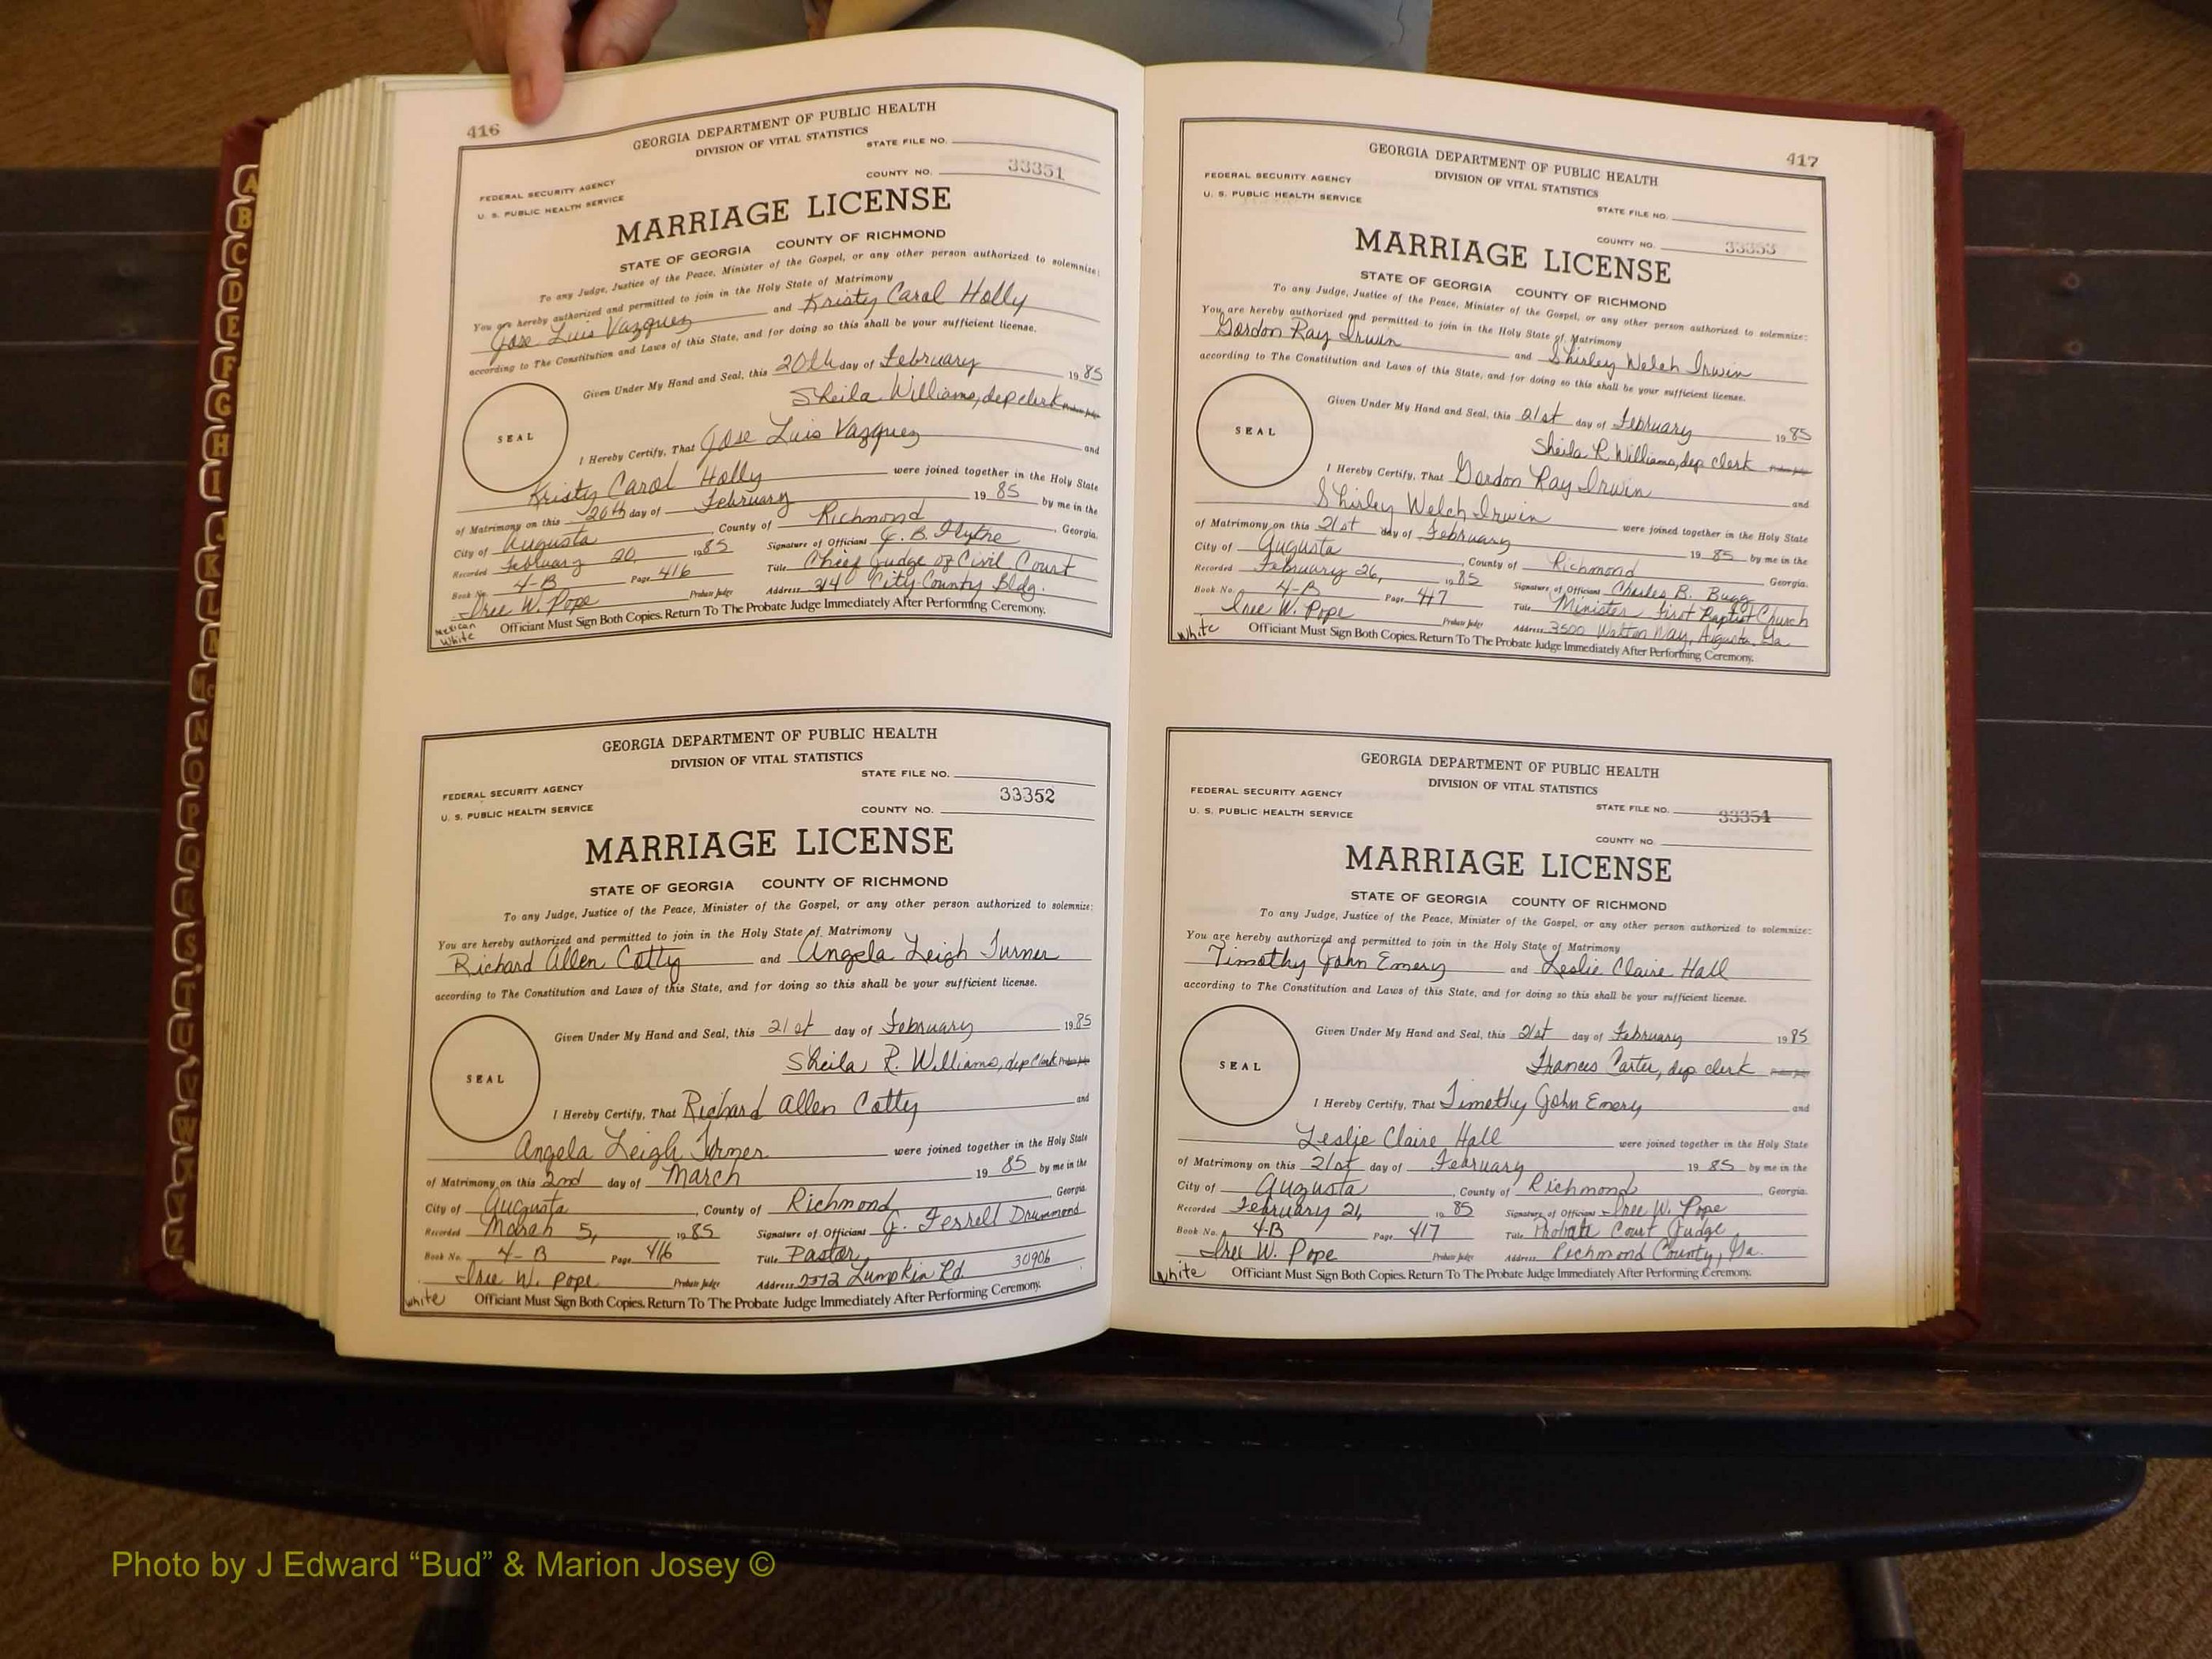 416
GEORGIA DEPARTMENT OF PUBLIC HEALTH
DIVISION OF VITAL STATISTICS
STATE FILE NO.
33351
COUNTY NO.
FEDERAL SECURITY AGENCY
U. S. PUBLIC HEALTH SERVICE
MARRIAGE LICENSE
STATE OF GEORGIA COUNTY OF RICHMOND
To any Judge, Justice of the Peace, Minister of the Gospel, or any other person authorized to solemnize:
You are hereby authorized and permitted to join in the Holy State of Matrimony
Jose Luis Vazquez and Kristy Carol Holly
according to The Constitution and Laws of this State, and for doing so this shall be your sufficient license.
Given Under My Hand and Seal, this 20th day of February 1985
Sheila Williams, dep clerk Probate Judge
SEAL
I Hereby Certify, That Jose Luis Vazquez and
Kristy Carol Holly were joined together in the Holy State
of Matrimony on this 20th day of February 1985 by me in the
City of Augusta, County of Richmond, Georgia.
Recorded February 20, 1985 Signature of Officiant
Book No. 4-B Page 416 Title Chief Judge of Civil Court
Iree W. Pope Probate Judge Address 314 City-County Bldg.
Mexican
White
Officiant Must Sign Both Copies. Return To The Probate Judge Immediately After Performing Ceremony.
GEORGIA DEPARTMENT OF PUBLIC HEALTH
DIVISION OF VITAL STATISTICS
STATE FILE NO.
33352
COUNTY NO.
FEDERAL SECURITY AGENCY
U. S. PUBLIC HEALTH SERVICE
MARRIAGE LICENSE
STATE OF GEORGIA COUNTY OF RICHMOND
To any Judge, Justice of the Peace, Minister of the Gospel, or any other person authorized to solemnize:
You are hereby authorized and permitted to join in the Holy State of Matrimony
Richard Allen Cotty and Angela Leigh Turner
according to The Constitution and Laws of this State, and for doing so this shall be your sufficient license.
Given Under My Hand and Seal, this 21st day of February 1985
Sheila R. Williams, dep clerk Probate Judge
SEAL
I Hereby Certify, That Richard Allen Cotty and
Angela Leigh Turner were joined together in the Holy State
of Matrimony on this 2nd day of March 1985 by me in the
City of Augusta, County of Richmond, Georgia.
Recorded March 5, 1985 Signature of Officiant J. Ferrell Drummond
Book No. 4-B Page 416 Title Pastor
Iree W. Pope Probate Judge Address Lumpkin Rd 30906
White
Officiant Must Sign Both Copies. Return To The Probate Judge Immediately After Performing Ceremony.
417
GEORGIA DEPARTMENT OF PUBLIC HEALTH
DIVISION OF VITAL STATISTICS
STATE FILE NO.
COUNTY NO. 33353
FEDERAL SECURITY AGENCY
U. S. PUBLIC HEALTH SERVICE
MARRIAGE LICENSE
STATE OF GEORGIA COUNTY OF RICHMOND
To any Judge, Justice of the Peace, Minister of the Gospel, or any other person authorized to solemnize:
You are hereby authorized and permitted to join in the Holy State of Matrimony
Gordon Ray Irwin and Shirley Welch Irwin
according to The Constitution and Laws of this State, and for doing so this shall be your sufficient license.
Given Under My Hand and Seal, this 21st day of February 1985
Sheila R Williams, dep clerk Probate Judge
SEAL
I Hereby Certify, That Gordon Ray Irwin and
Shirley Welch Irwin were joined together in the Holy State
of Matrimony on this 21st day of February 1985 by me in the
City of Augusta, County of Richmond Georgia.
Recorded February 26, 1985 Signature of Officiant Charles B. Bugg
Book No. 4-B Page 417 Title Minister First Baptist Church
Iree W. Pope Probate Judge Address 3500 Walton Way, Augusta, Ga
White
Officiant Must Sign Both Copies. Return To The Probate Judge Immediately After Performing Ceremony.
GEORGIA DEPARTMENT OF PUBLIC HEALTH
DIVISION OF VITAL STATISTICS
STATE FILE NO. 33354
COUNTY NO.
FEDERAL SECURITY AGENCY
U. S. PUBLIC HEALTH SERVICE
MARRIAGE LICENSE
STATE OF GEORGIA COUNTY OF RICHMOND
To any Judge, Justice of the Peace, Minister of the Gospel, or any other person authorized to solemnize:
You are hereby authorized and permitted to join in the Holy State of Matrimony
Timothy John Emery and Leslie Claire Hall
according to The Constitution and Laws of this State, and for doing so this shall be your sufficient license.
Given Under My Hand and Seal, this 21st day of February 1985
Frances Carter, dep clerk Probate Judge
SEAL
I Hereby Certify, That Timothy John Emery and
Leslie Claire Hall were joined together in the Holy State
of Matrimony on this 21st day of February 1985 by me in the
City of Augusta, County of Richmond Georgia.
Recorded February 21, 1985 Signature of Officiant Iree W. Pope
Book No. 4-B Page 417 Title Probate Court Judge
Iree W. Pope Probate Judge Address Richmond County, Ga.
White
Officiant Must Sign Both Copies. Return To The Probate Judge Immediately After Performing Ceremony.
A
B
C
D
E
F
G
H
I
J
K
L
M
Mc
N
O
P
Q
R
S
T
U
V
W
X
Y
Z
Photo by J Edward “Bud” & Marion Josey ©